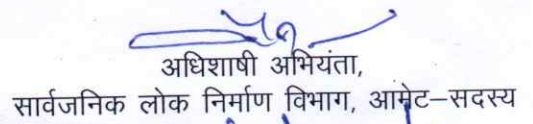 अधिशाषी अभियंता,
सार्वजनिक लोक निर्माण विभाग, आमेट–सदस्य